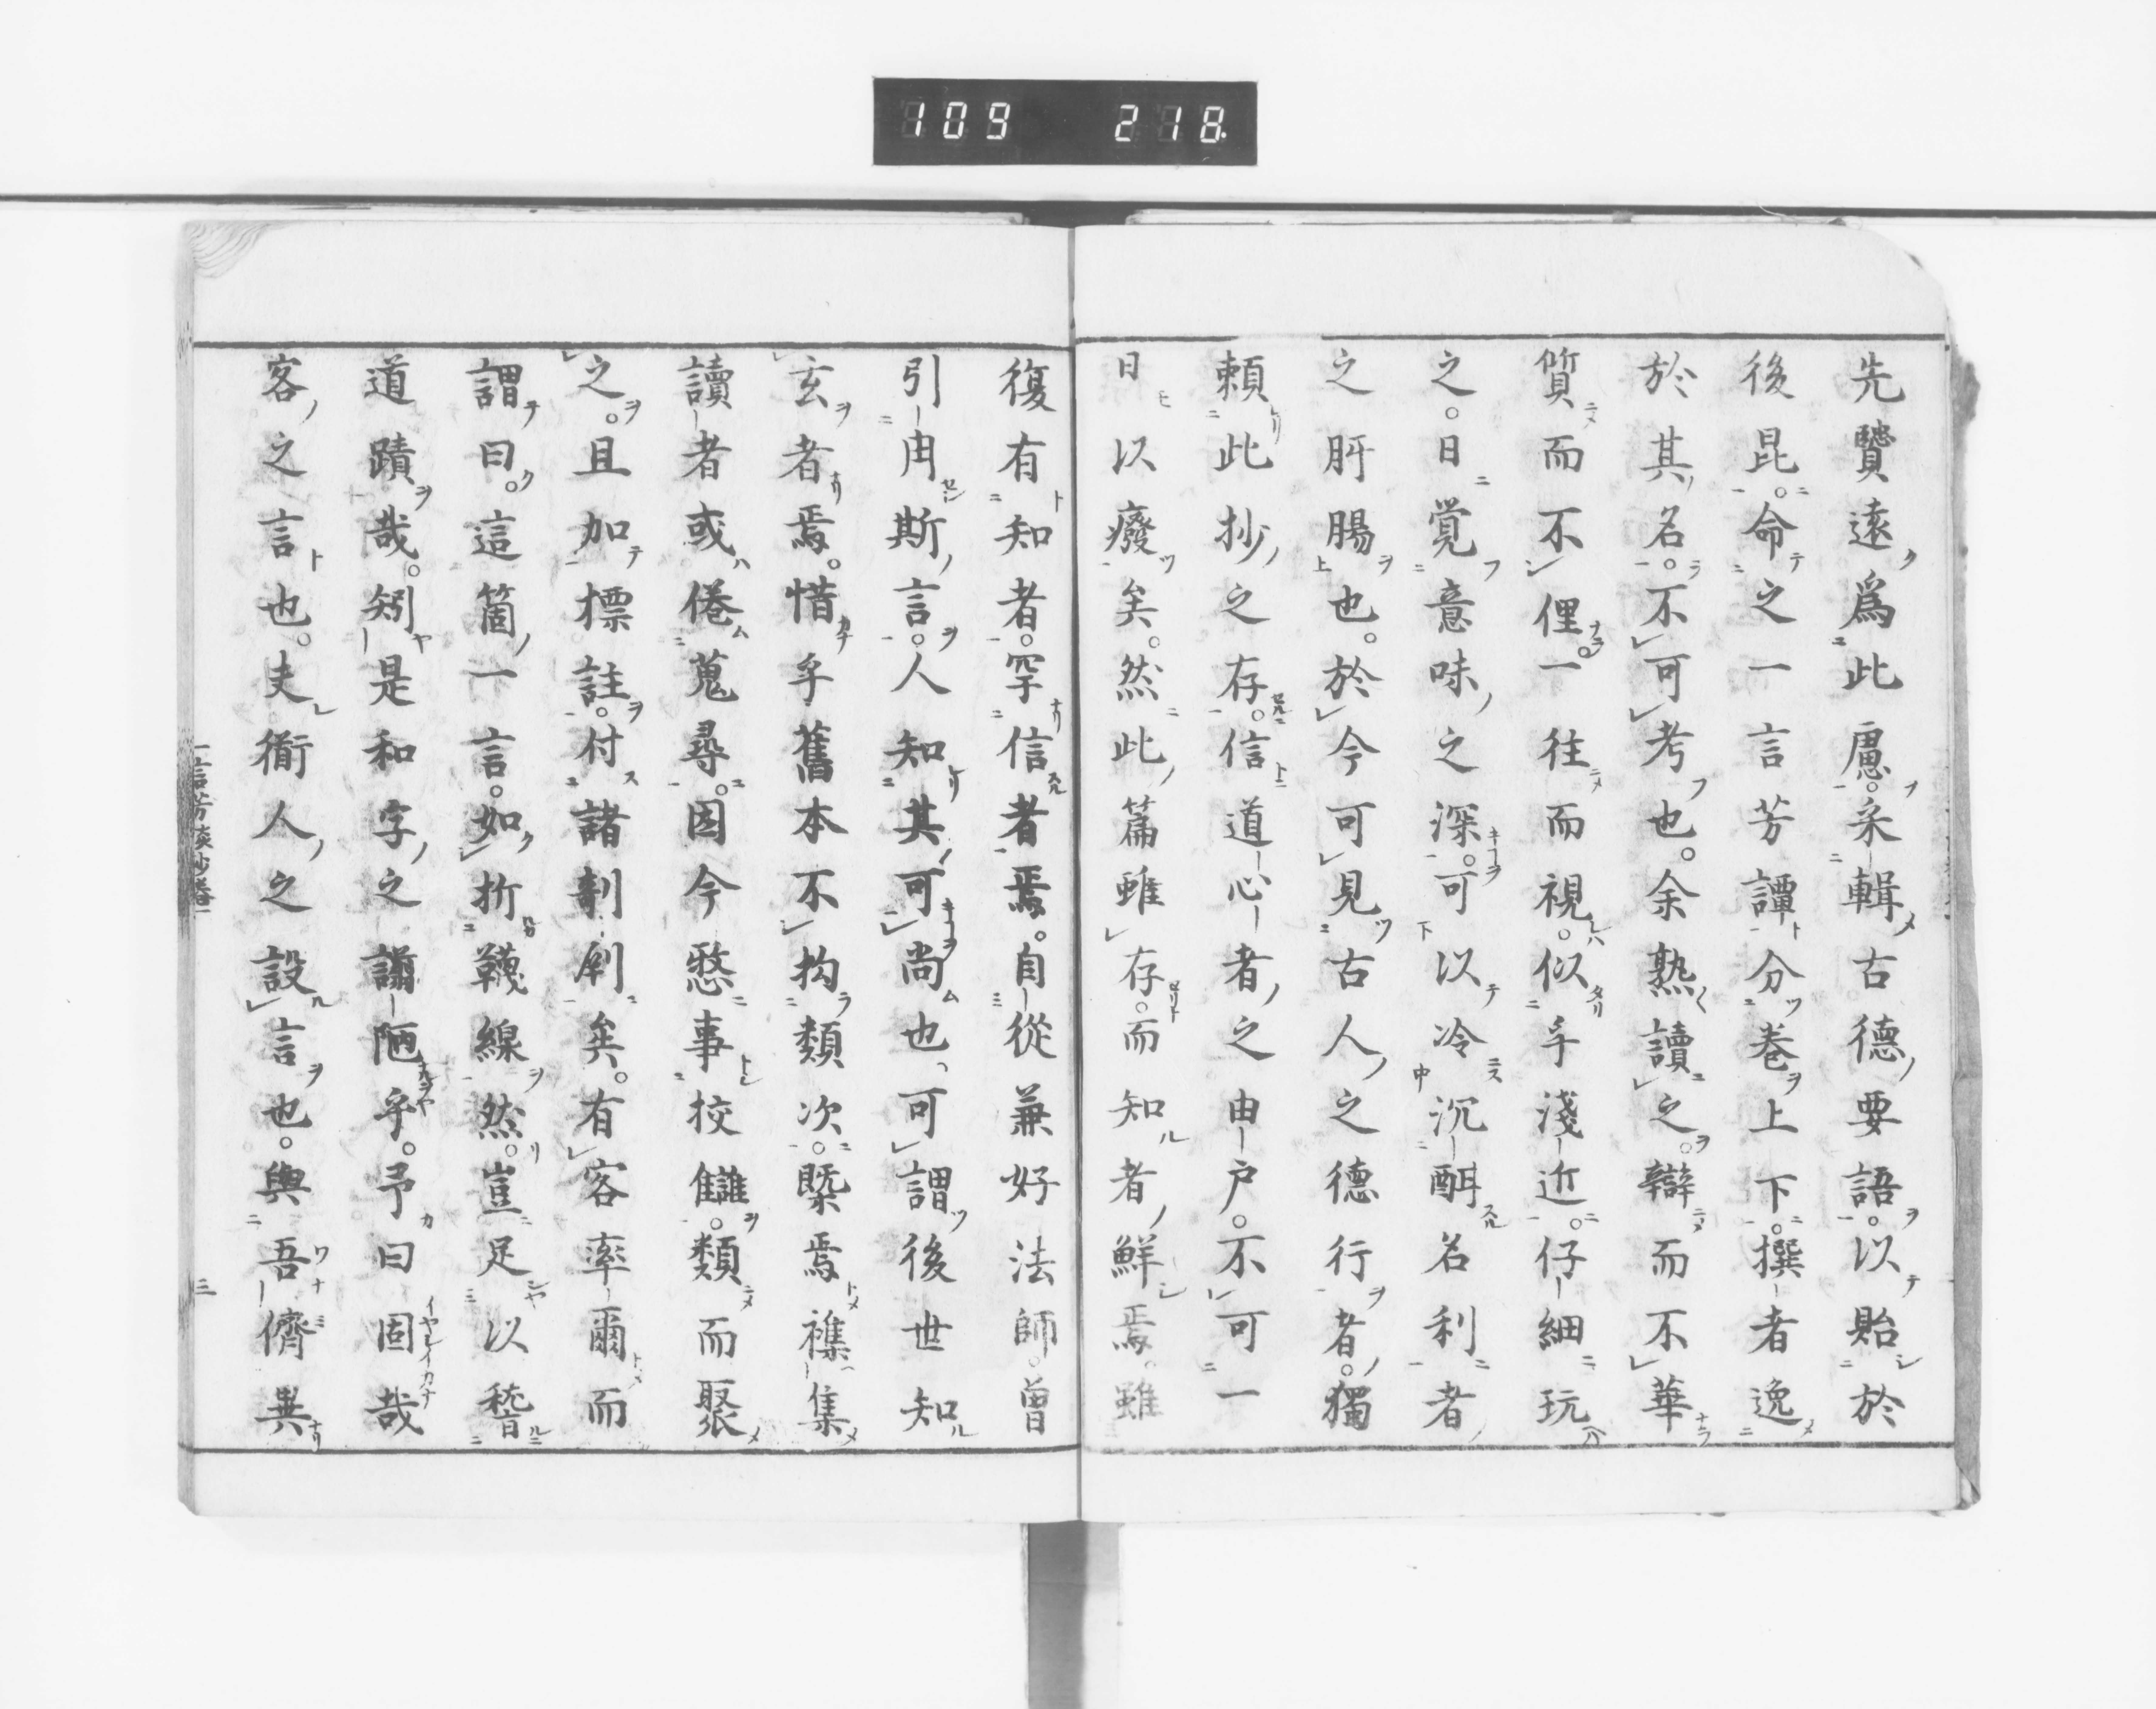 109 218
先賢遠為此慮。采輯古德要語。以貽於
後昆。命之一言芳譚分卷上下。撰者逸
於其名。不可考也。余熟讀之。辯而不華
質而不俚。一往而視。似乎淺近。仔細玩
之。日覺意味之深。可以冷沉酣名利者
之肝腸也。於今可見古人之德行者。獨
賴此抄之存。信道心者之由戶。不可一
日以癈矣。然此篇雖存。而知者鮮焉。雖
復有知者。罕信者焉。自從兼好法師。曾
引用斯言。人知其可尚也、可謂後世知
玄者焉。惜乎舊本不拘類次。槩焉襍集
讀者或倦蒐尋。因今愁事挍讎。類而聚
之。且加標註。付諸剞劂矣。有客率爾而
謂曰。這箇一言。如折襪線然。豈足以稽
道蹟哉。矧是和字之譾陋乎。予曰固哉
客之言也。夫衒人之設言也。與吾儕異
一言芳談抄卷一 三